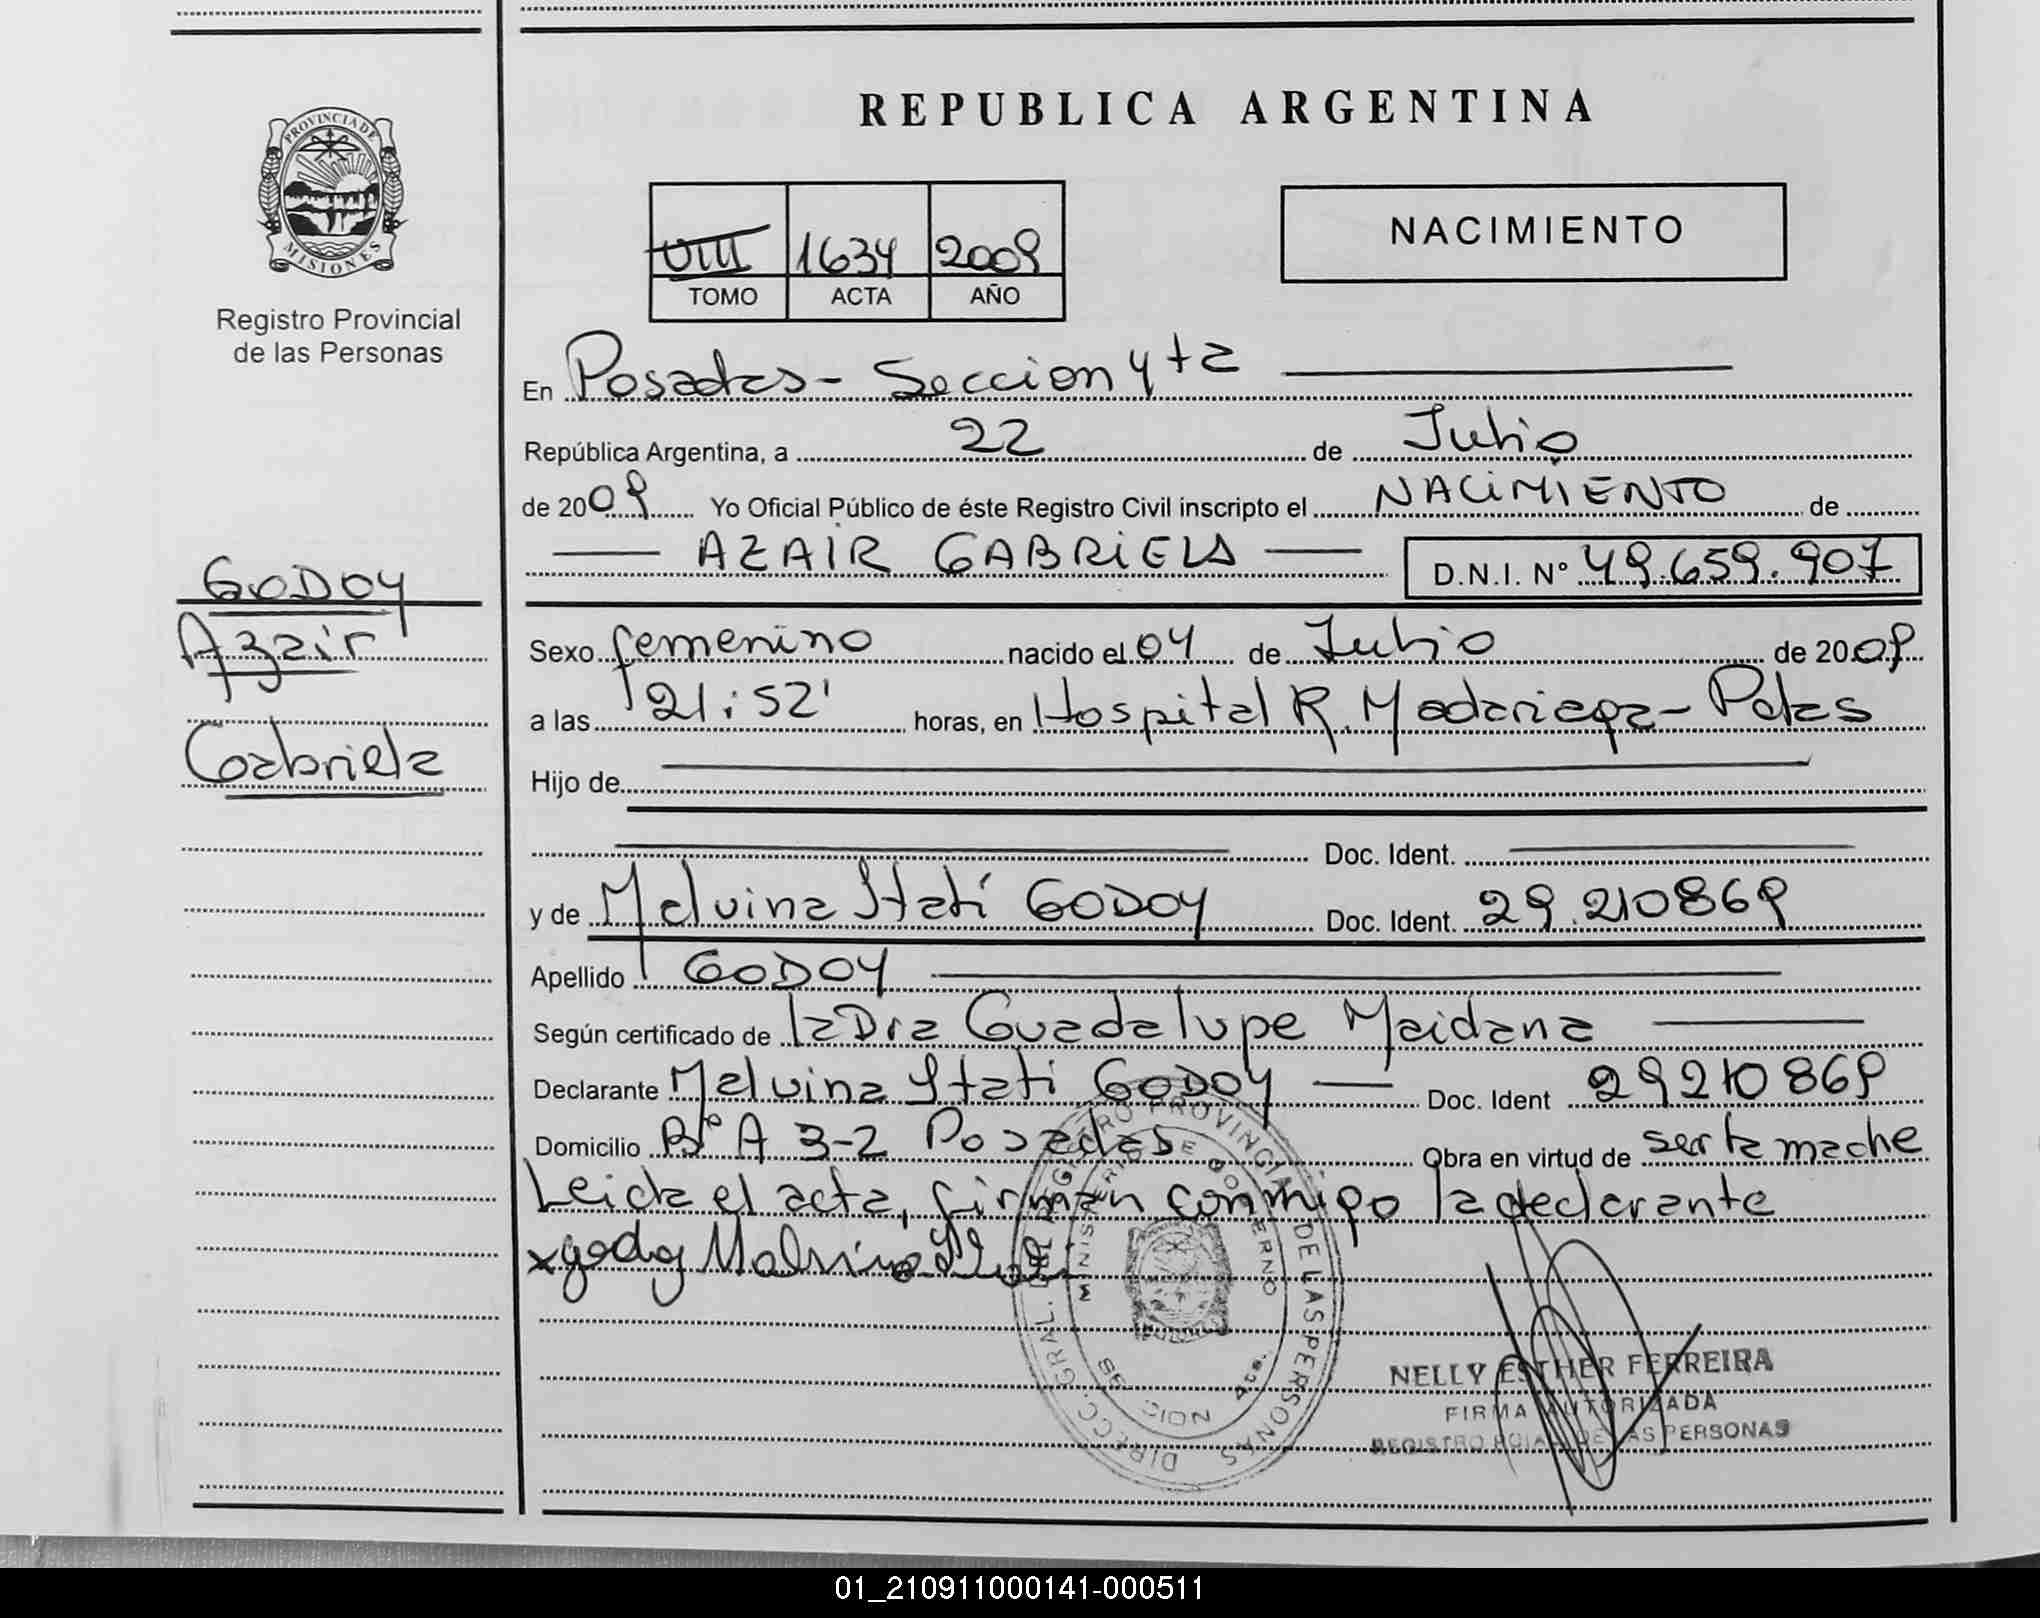 REPUBLICA ARGENTINA
PROVINCIA DE
MISIONES
Registro Provincial
de las Personas
VIII 1634 2009
TOMO ACTA AÑO
NACIMIENTO
En Posadas - Seccion 4ta
República Argentina, a 22 de Julio
de 2009 Yo Oficial Público de éste Registro Civil inscripto el NACIMIENTO de
AZAIR GABRIELA D.N.I. Nº 49.659.907
GODOY
Azair
Gabriela
Sexo femenino nacido el 04 de Julio de 2009
a las 21:52' horas, en Hospital R. Madariaga - Pdas
Hijo de
Doc. Ident.
y de Malvina Itatí GODOY Doc. Ident. 29.210869
Apellido GODOY
Según certificado de la Dra Guadalupe Maidana
Declarante Malvina Itati GODOY Doc. Ident 29210869
Domicilio Bº A 3-2 Posadas Obra en virtud de ser la madre
Leida el acta, firman conmigo la declarante
x godoy Malvina Itati
DIRECC. GRAL. DEL REGISTRO PROVINCIAL DE LAS PERSONAS
MINISTERIO DE GOBIERNO
NELLY ESTHER FERREIRA
FIRMA AUTORIZADA
REGISTRO PCIAL. DE LAS PERSONAS
01_210911000141-000511